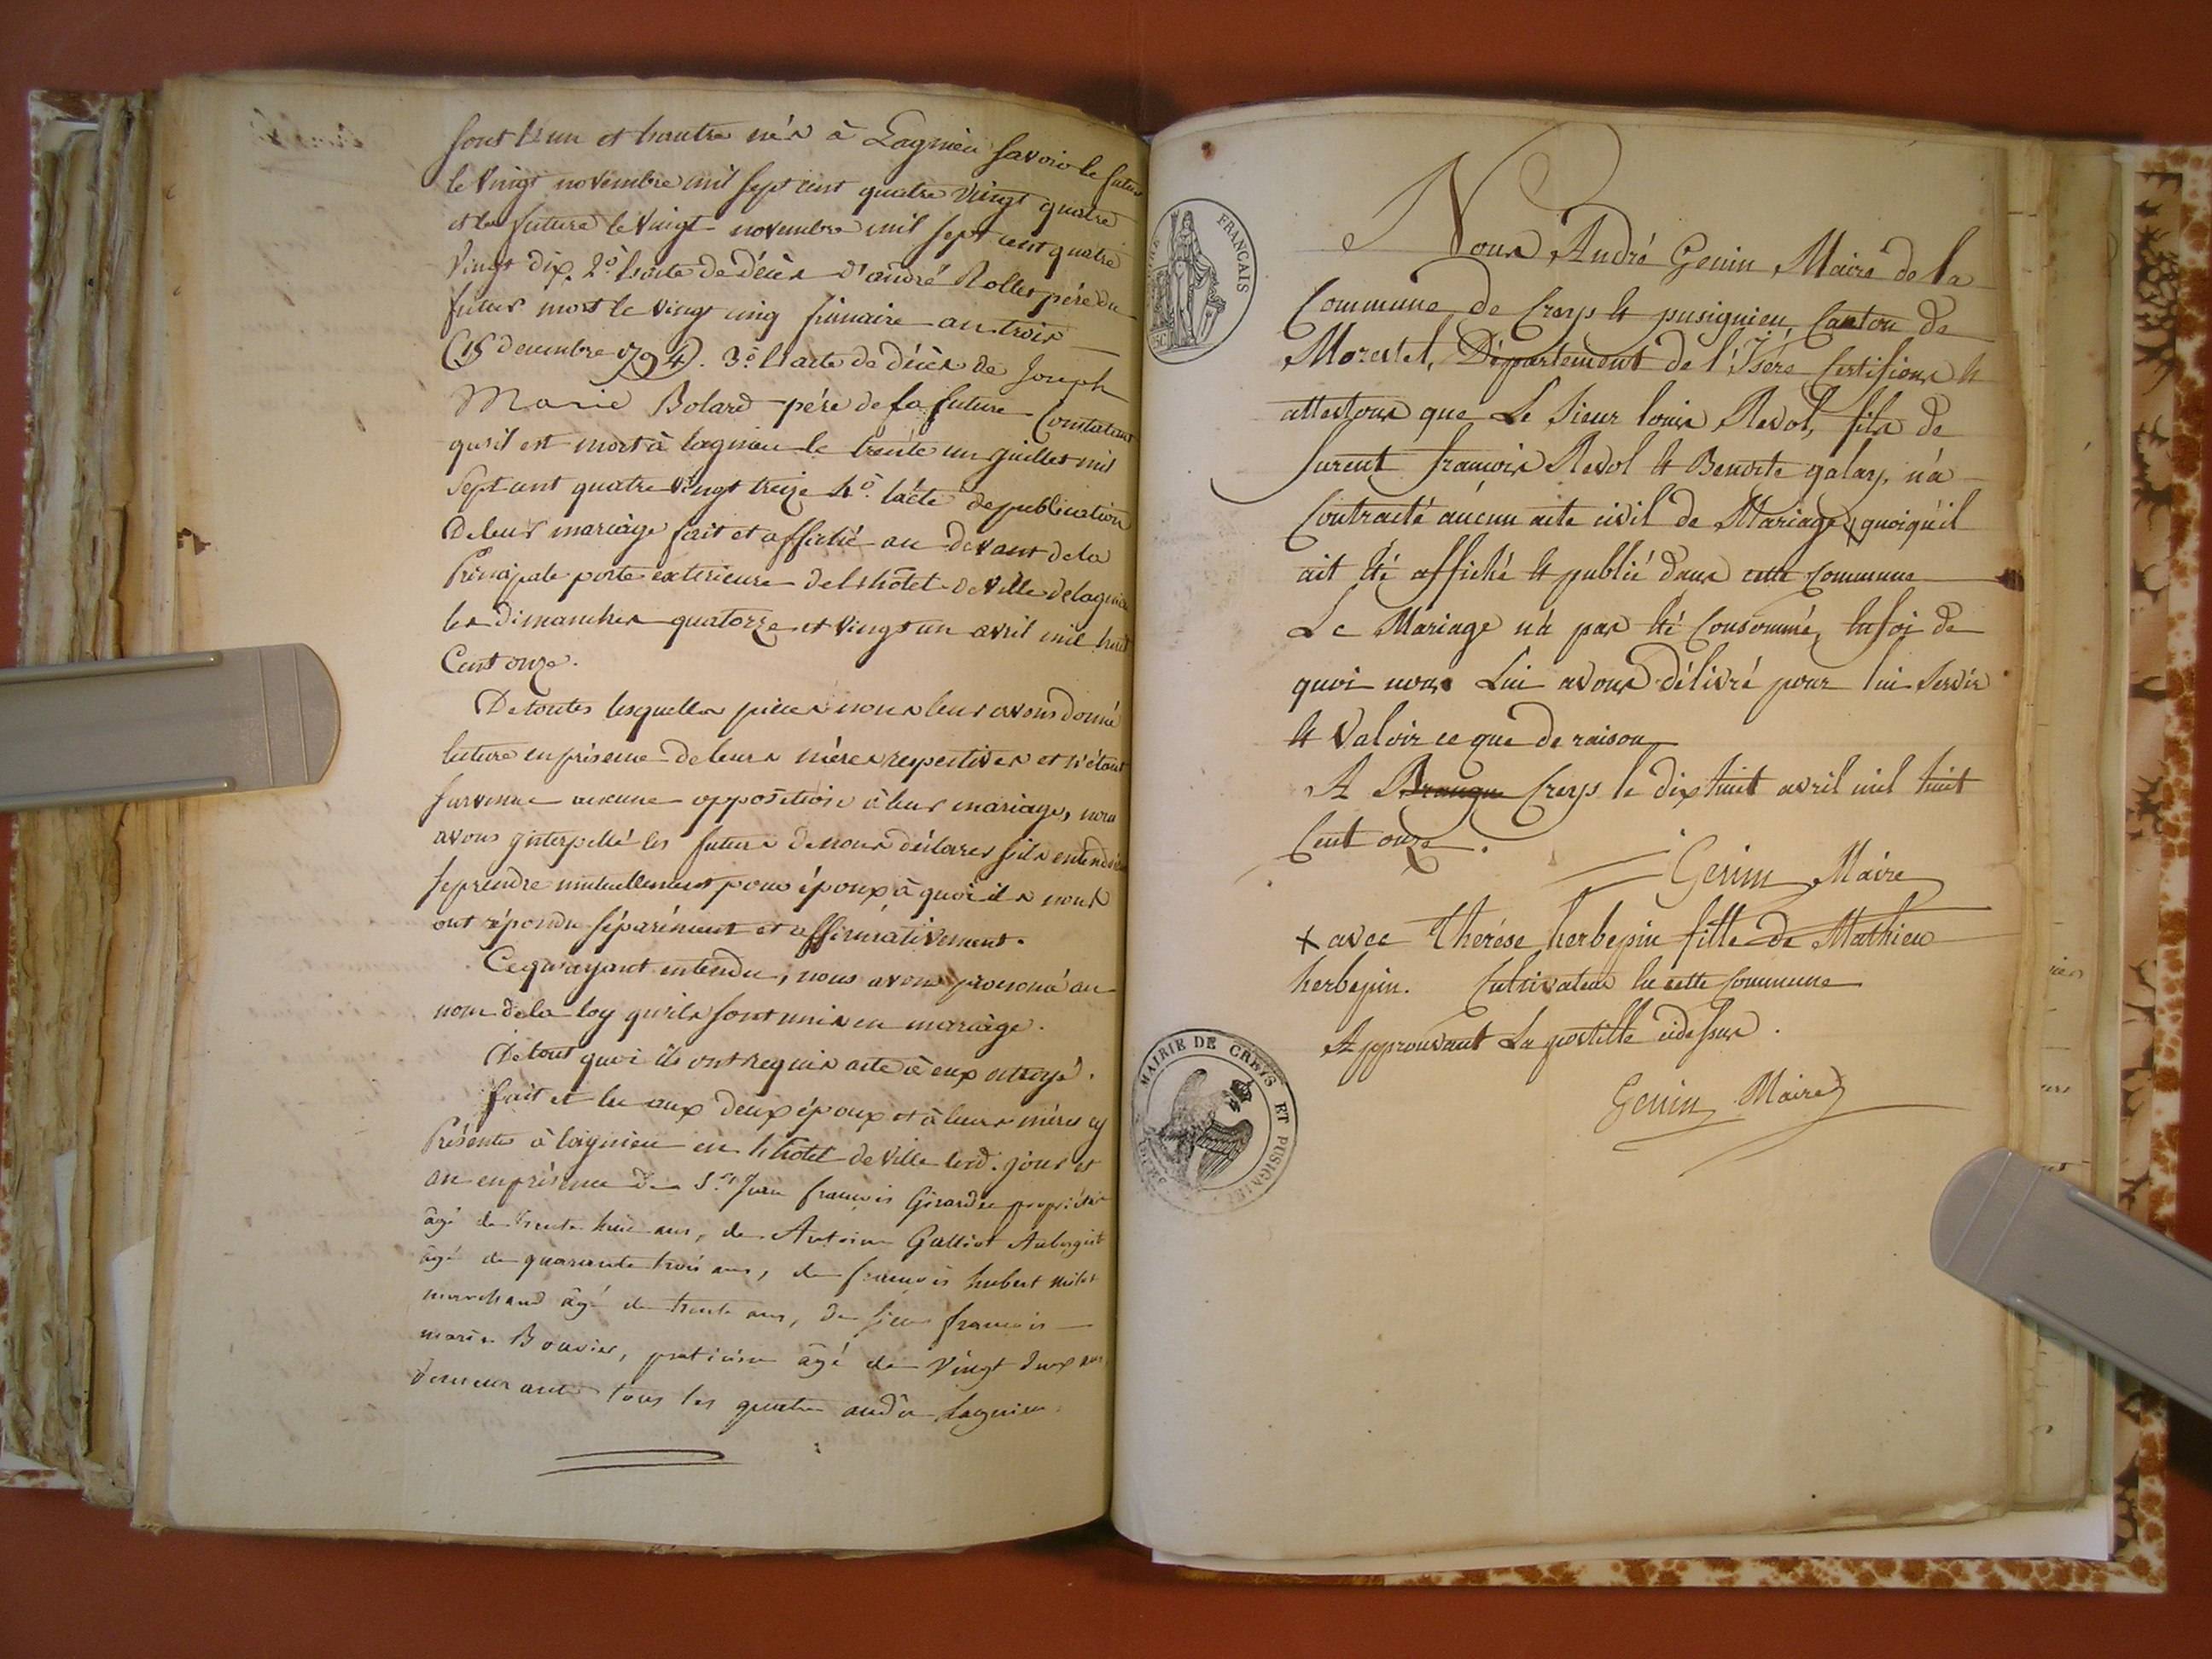 sont l'un et l'autre nés à Lagnieu savoir le futur
le vingt novembre mil sept cent quatre vingt quatre
et la future le vingt novembre mil sept cent quatre
vingt dix. 2o. l'acte de décès d'andré Rollet père du
futur mort le vingt cinq frimaire an trois
(15 decembre 1794). 3o. l'acte de décès de Joseph
Marie Bolard père de la future Constatant
qu'il est mort à lagnieu le trente un juillet mil
sept cent quatre vingt treize 4o. l'acte de publication
de leur mariage fait et affiché au devant de la
Principale porte exterieure de l'hôtel de Ville de lagnieu
les dimanches quatorze et vingt un avril mil huit
Cent onze.
De toutes lesquelles pièces nous leur avons donné
lecture en présence de leurs mères respectives et n'étant
survenue aucune opposition à leur mariage, nous
avons interpellé les futurs de nous déclarer s'ils entendoient
se prendre mutuellement pour époux à quoi ils nous
ont répondu séparément et affirmativement.
Ce qu'ayant entendu, nous avons prononcé au
nom de la loy qu'ils sont unis en mariage.
De tout quoi ils ont requis acte à eux octroyé.
fait et lu aux deux époux et à leurs mères cy
Présentes à lagnieu en l'hôtel de ville led. jour et
an en présence de Sr. Jean françois Girardee propriétaire
âgé de trente huit ans, de Antoine Galliot Aubergiste
âgé de quarante trois ans, de françois hubert
marchand âgé de trente ans, de sieur françois
marie Bouvier, praticien âgé de vingt deux ans
demeurants tous les quatre audit Lagnieu.
FRANÇAIS
Nous André Genin Maire de la
Commune de Creys et pusignieu, Canton de
Morestel, Département de l'Isére Certifions et
attestons que Le Sieur louis Revol, fils de
furent françois Revol et Benoite galay, n'a
Contracté aucun acte civil de Mariage x quoiqu'il
ait été affiché et publié dans cette Commune
Le Mariage n'a pas été Consommé, En foi de
quoi nous Lui avons délivré pour lui servir
et Valoir ce que de raison
A Brangue Creys le dix huit avril mil huit
Cent onze.
Genin Maire
x avec thérése herbepin fille de Mathieu
herbepin. Cultivateur de cette Commune
Approuvant La postille cidessus.
Genin Maire
MAIRIE DE CREYS ET PUSIGNIEU